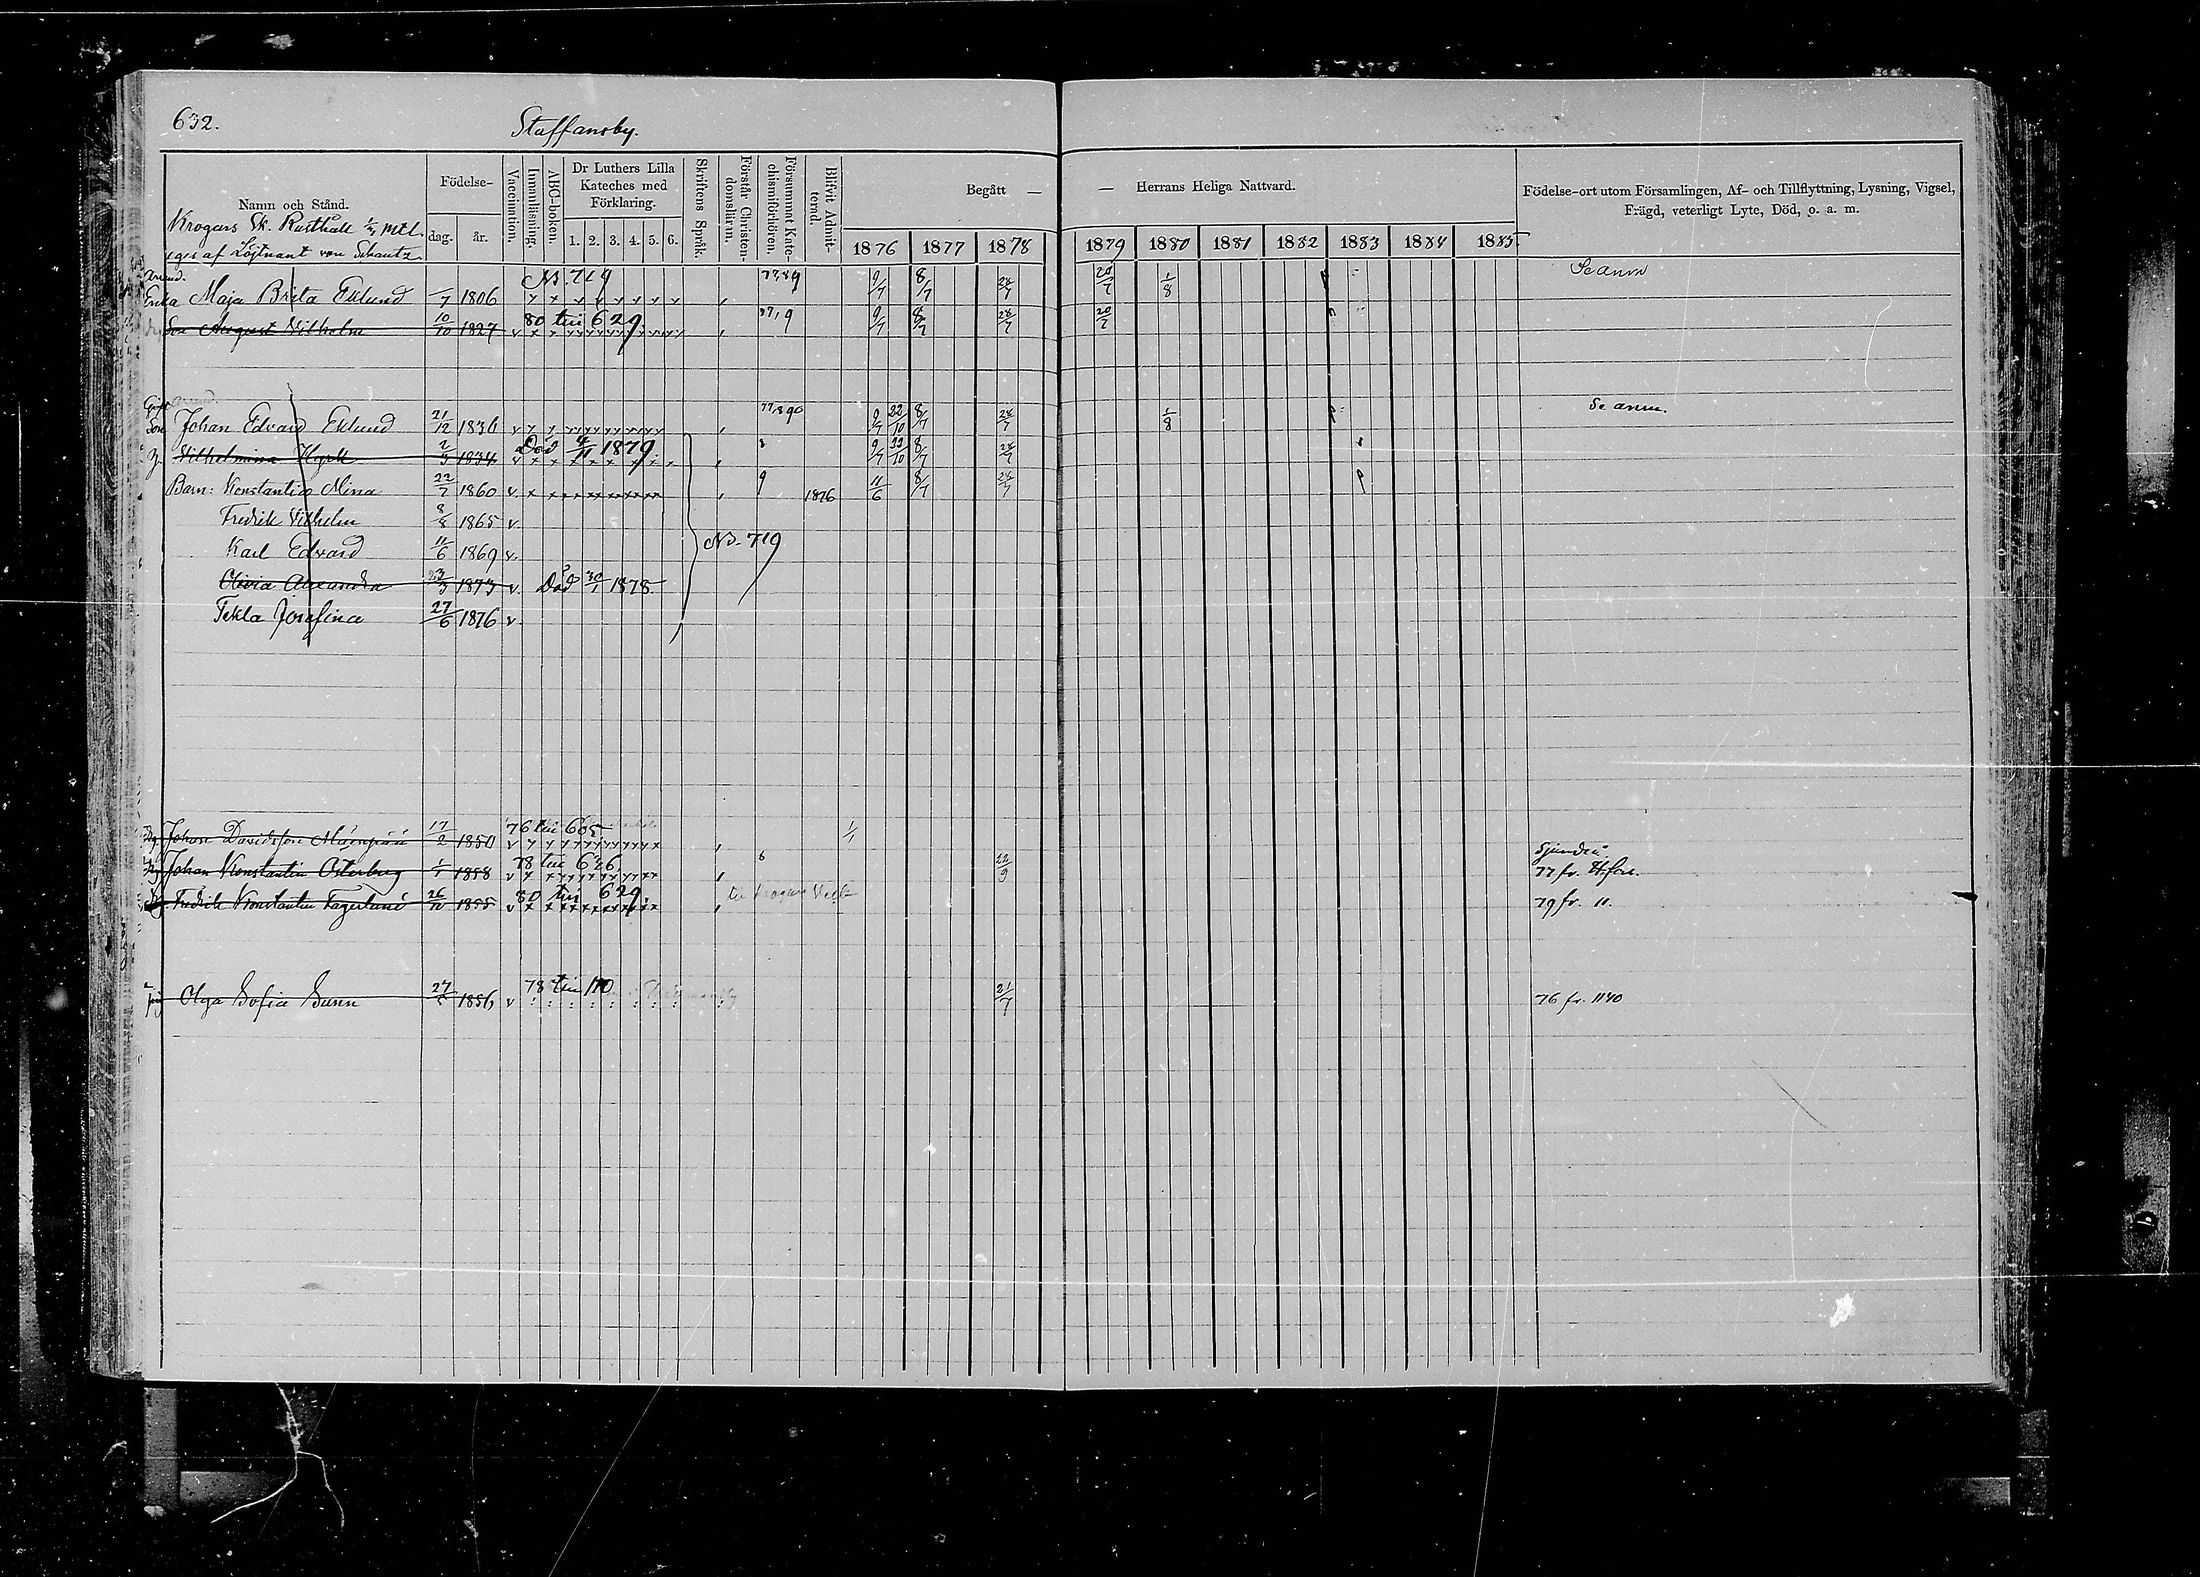 632.
Staffansby.
Namn och Stånd.
Födelse-
dag. år.
Vaccination.
Innanläsning.
ABC-boken.
Dr Luthers Lilla Kateches med Förklaring.
1. 2. 3. 4. 5. 6.
Skriftens Språk.
Förstår Christendomslärun.
Försummat Katechismiförhören.
Blifvit Admitterad.
Begått —
— Herrans Heliga Nattvard.
Födelse-ort utom Församlingen, Af- och Tillflyttning, Lysning, Vigsel,
Frägd, veterligt Lyte, Död, o. a. m.
1876 1877 1878 1879 1880 1881 1882 1883 1884 1885
Krogars Sk. Rusthåll ½ mtl.
eges af Löjtnant von Schantz
Enka Maja Brita Eklund /7 1806 NB. 719 9/7 8/7 28/7 20/7 1/8 Se anm
Son August Vilhelm 10/10 1827 80 till 629 9/7 8/7 28/7 20/7
Son Johan Edvard Eklund 21/12 1836 9/7 22/10 8/7 28/7 1/8 Se anm.
Vilhelmina 2/3 1834 Död 4/11 1879. 9/7 22/10 8/7 28/7
Barn: Konstantia Mina 22/7 1860 v. 9 1876 11/6 8/7 28/7
Fredrik Vilhelm 8/8 1865 v.
Karl Edvard 11/6 1869 v. NB. 719
Olivia Alexandra 23/3 1873 v. Död 30/1 1878
Tekla Josefina 27/6 1876 v.
Johan Davidsson Mäenpää 17/2 1850 76 till 605 1/1
Sjundeå
Johan Konstantin Österberg 1/1 1858 78 till 636 6 22/9 77 fr. H:fors.
Fredrik Konstantin Fagerlund 26/10 1855 80 till 629. till Krogars 79 fr. 11.
Olga Sofia Sunn 27/5 1856 v 78 till 110 21/7 76 fr. 1140